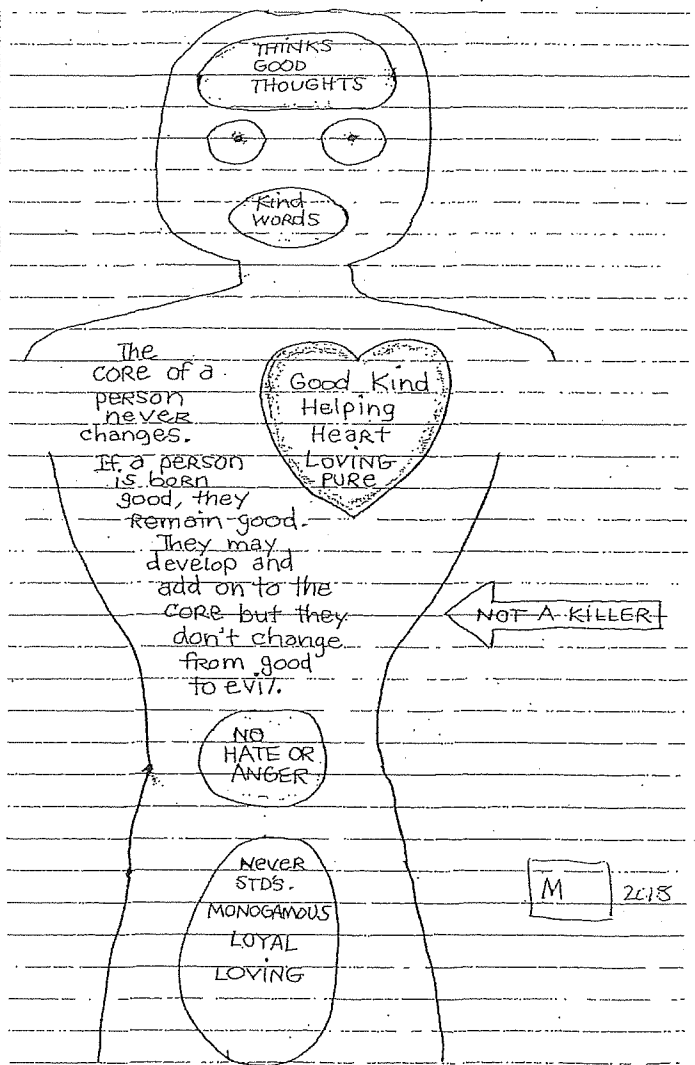 THINKS
GOOD
THOUGHTS
Kind
WORDS
The
CORE of a
person
never
changes.
If a person
is born
good, they
Remain good.
They may
develop and
add on to the
CORE but they
don't change
from good
to evil.
Good Kind
Helping
HeaRt
LOVING
PURe
NOT A KILLER
NO
HATE OR
ANGER
NeveR
STD'S.
MONOGAMOUS
LOYAL
LOVING
M 2018